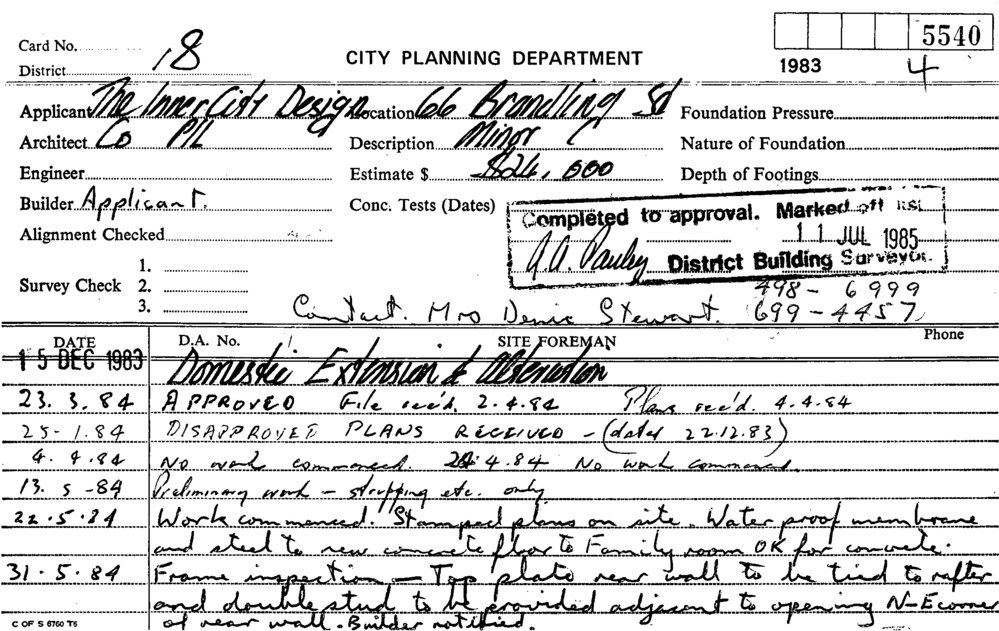 5540
Card No.
18
CITY PLANNING DEPARTMENT
1983
4
District
Applicant The Inner City Design Location 66 Brandling St Foundation Pressure
Architect Co P/L Description Minor C Nature of Foundation
Engineer Estimate $ $24,000 Depth of Footings
Builder Applicant. Conc. Tests (Dates)
Completed to approval. Marked off
Alignment Checked 11 JUL 1985
District Building Surveyor.
1.
Survey Check 2.
498-6999
3. Contact. Mrs Denic Stewart. 699-4457
DATE D.A. No. SITE FOREMAN Phone
15 DEC 1983 Domestic Extension & Alteration
23.3.84 APPROVED File rec'd. 2.4.84 Plans rec'd. 4.4.84
25-1.84 DISAPPROVED PLANS RECEIVED - (dated 22.12.83)
4.4.84 No work commenced. 24.4.84 No work commenced.
13.5-84 Preliminary work - stripping etc. only.
22.5.84 Work commenced. Stamped plans on site. Water proof membrane
and steel to new concrete floor to Family room OK for concrete.
31.5.84 Frame inspection - Top plate rear wall to be tied to rafter
and double stud to be provided adjacent to opening N-E corner
of rear wall. Builder notified.
C OF S 6760 T6